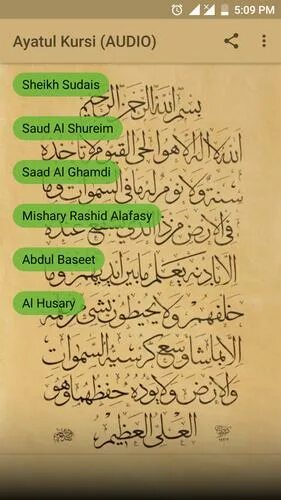 5:09 PM
Ayatul Kursi (AUDIO)
بسم الله الرحمن الرحيم
Sheikh Sudais
الله لا اله الا هو الحي القيوم لا تأخذه
Saud Al Shureim
سنة ولا نوم له ما في السموات وما
Saad Al Ghamdi
في الارض من ذا الذي يشفع عنده
Mishary Rashid Alafasy
الا باذنه يعلم ما بين ايديهم وما
Abdul Baseet
خلفهم ولا يحيطون بشيء من علمه
Al Husary
الا بما شاء وسع كرسيه السموات
والارض ولا يؤده حفظهما وهو
العلي العظيم